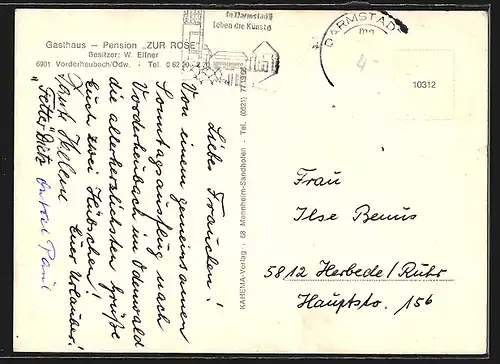 Gasthaus – Pension „ZUR ROSE"
Besitzer: W. Elfner
6901 Vorderheubach/Odw. - Tel. 0 62 20
In Darmstadt
leben die Künste
DARMSTADT
4-
10312
Liebe Fraulen!
Von einem gemeinsamen
Sonntagsausflug nach
Vorderheubach im Odenwald
die allerherzlichsten Grüße
Euch zwei Hübschen!
Euer Urlauber!
Tante Helene
"Fetter" Dieter
Onkel Paul
KAHEMA-Verlag · 68 Mannheim-Sandhofen · Tel. (0621)
Frau
Ilse Benus
5812 Herbede/Ruhr
Hauptstr. 156